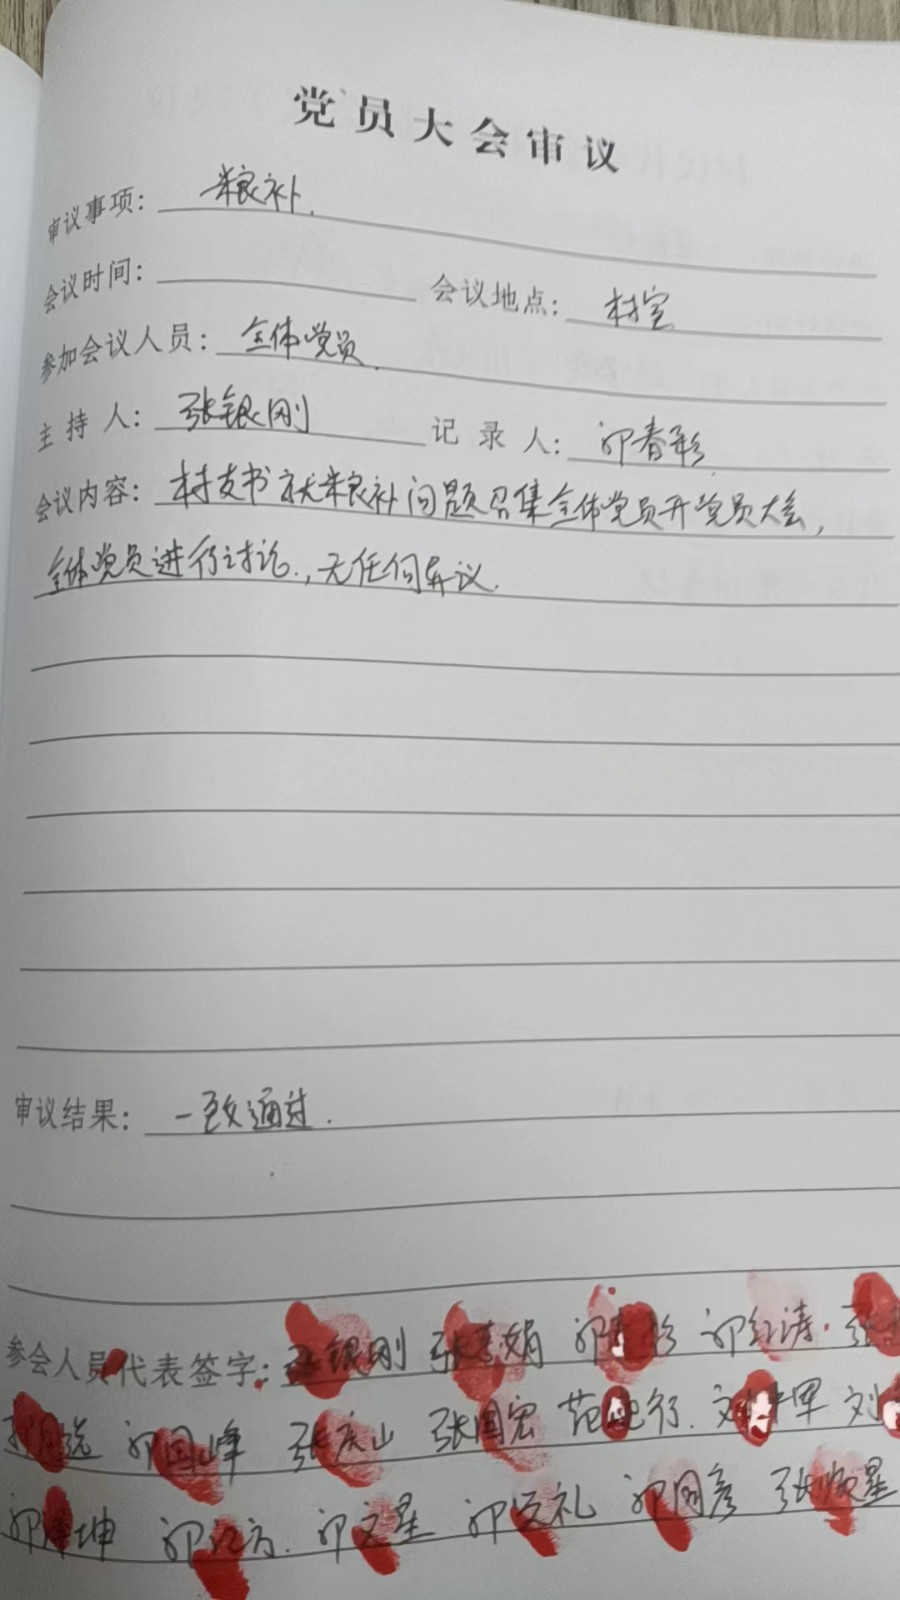 党员大会审议
审议事项： 粮补.
会议时间： 会议地点： 村室
参加会议人员： 全体党员.
主持人： 张银刚 记录人： 邓春彩
会议内容： 村支书就粮补问题召集全体党员开党员大会，
全体党员进行讨论.，无任何异议.
审议结果： 一致通过.
参会人员代表签字： 张银刚 张素娟 邓春彩 邓红涛 张
邓国峰 张庆山 张国宏 范建行.
邓文星 邓国彦 张顺星